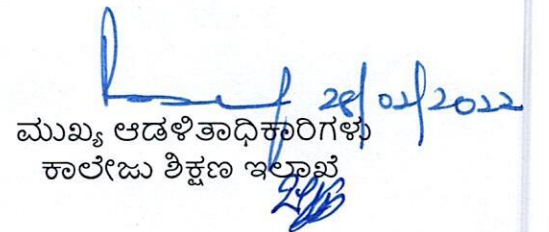 28/02/2022
ಮುಖ್ಯ ಆಡಳಿತಾಧಿಕಾರಿಗಳು
ಕಾಲೇಜು ಶಿಕ್ಷಣ ಇಲಾಖೆ